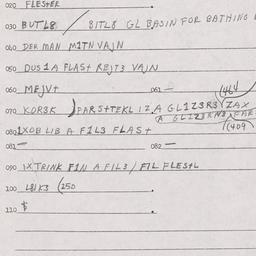 020 FLESTER
030 BUTL8 / 8ITL8 GL BASIN FOR BATHING
040 DER MAN MITN VAJN
050 DUS 1A FLAST REJT3 VAJN
060 MEJVT 061 — (464
070 KOR3K )PARSTTEKL 12.A GL1Z3R3(ZAX
A GL1Z3RN3
080 1XOB LIB A F1L3 FLAST (409
081 — 082 —
090 IXTRINK F1N A FIL3/ F1L FLESTL
100 L81K3 (250
110 $